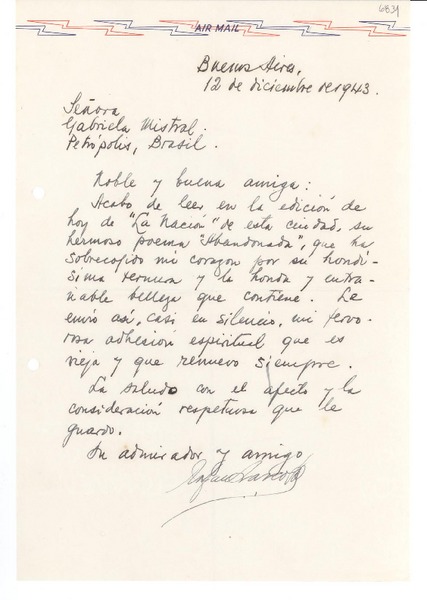 6831
AIR MAIL
Buenos Aires,
12 de diciembre de 1943.
Señora
Gabriela Mistral.
Petrópolis, Brasil.
Noble y buena amiga:
Acabo de leer en la edición de
hoy de "La Nación" de esta ciudad, su
hermoso poema "Abandonada", que ha
sobrecojido mi corazon por su hondí-
sima ternura y la honda y entra-
ñable belleza que contiene. Le
envío así, casi en silencio, mi fervo-
rosa adhesion espiritual que es
vieja y que renuevo siempre.
La saludo con el afecto y la
consideración respetuosa que le
guardo.
Su admirador y amigo